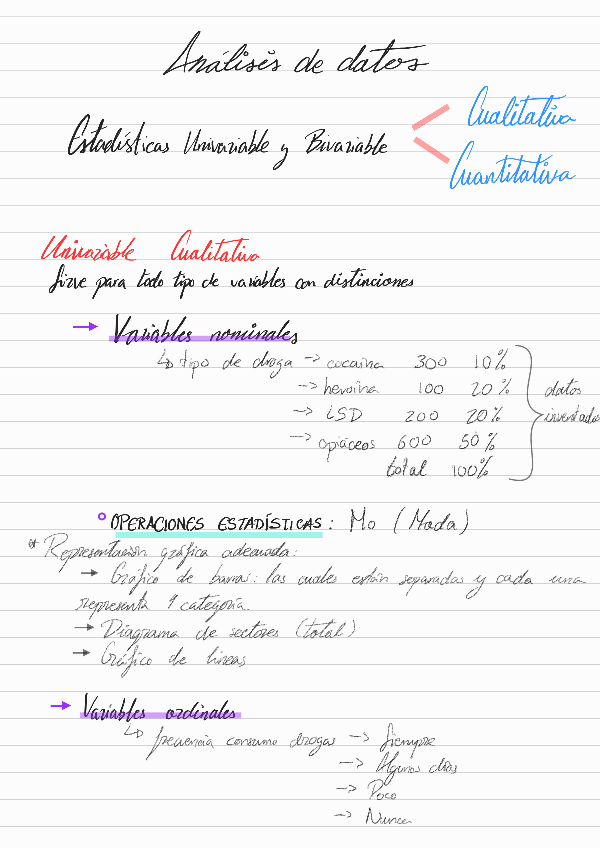 Análisis de datos
Cualitativa
Estadísticas Univariable y Bivariable
Cuantitativa
Univariable Cualitativa
Sirve para todo tipo de variables con distinciones
→ Variables nominales
↳ tipo de droga → cocaína 300 10%
→ heroína 100 20%
→ LSD 200 20%
→ opiáceos 600 50%
total 100%
datos
inventados
° OPERACIONES ESTADÍSTICAS: Mo (Moda)
* Representación gráfica adecuada:
→ Gráfico de barras: las cuales están separadas y cada una
representa 1 categoría.
→ Diagrama de sectores (total)
→ Gráfico de líneas
→ Variables ordinales
↳ frecuencia consumo drogas → Siempre
→ Algunos días
→ Poco
→ Nunca